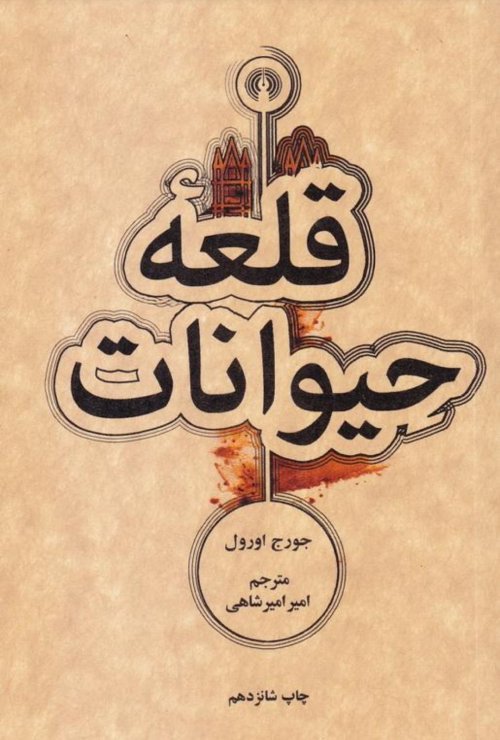 قلعهٔ
حیوانات
جورج اورول
مترجم
امیر امیرشاهی
چاپ شانزدهم